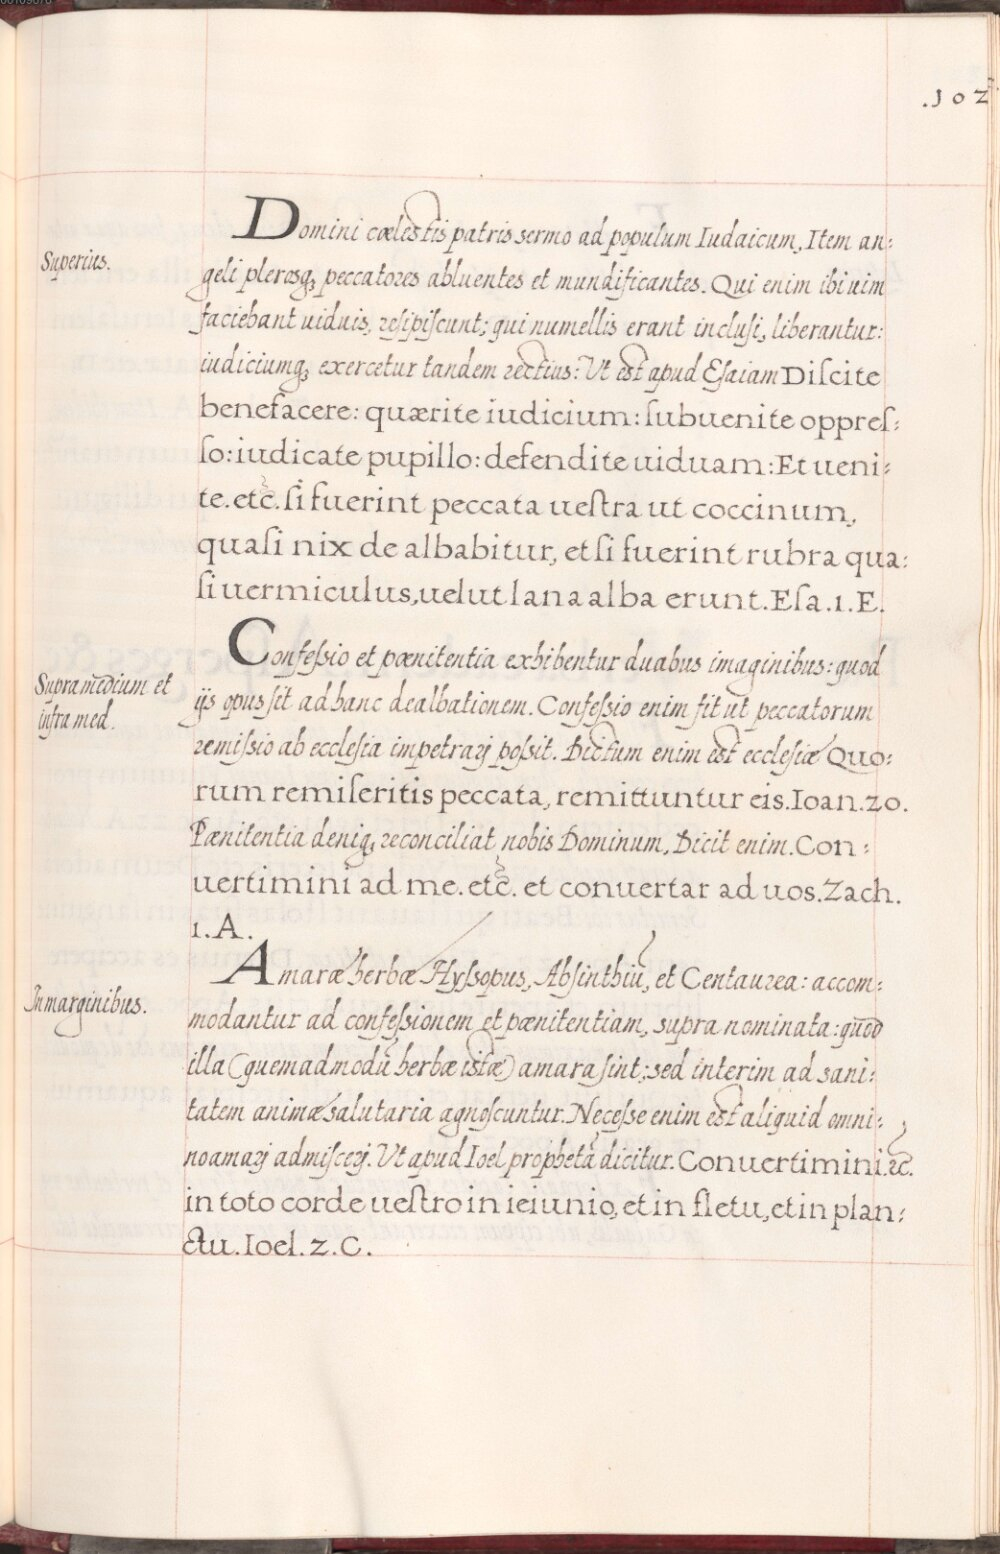 .102
Domini cœlestis patris sermo ad populum Iudaicum, Item an:
Superius.
geli plerosq; peccatores abluentes et mundificantes. Qui enim ibi uim
faciebant uiduis, resipiſcunt; qui numellis erant incluſi, liberantur:
iudiciumq; exercetur tandem rectius: Ut est apud Eſaiam Diſcite
benefacere: quærite iudicium: ſubuenite oppreſ:
ſo: iudicate pupillo: defendite uiduam: Et ueni:
te. etc. ſi fuerint peccata ueſtra ut coccinum,
quaſi nix de albabitur, et ſi fuerint rubra qua:
ſi uermiculus, uelut lana alba erunt. Eſa. 1. E.
Confeſsio et pœnitentia exhibentur duabus imaginibus: quod
Supra mediũm et
infra med.
ijs opus ſit ad hanc dealbationem. Confeſsio enim fit ut peccatorum
remiſsio ab eccleſia impetrarj poſsit. Dictum enim est eccleſiæ Quo:
rum remiſeritis peccata, remittuntur eis. Ioan. 20.
Pænitentia deniq; reconciliat nobis Dominum, Dicit enim. Con:
uertimini ad me. etc. et conuertar ad uos. Zach.
1. A.
Amaræ herbæ Hyſsopus, Abſinthiũ, et Centaurea: accom:
In marginibus.
modantur ad confeſsionem et pœnitentiam, supra nominata: quod
illa (quemadmodũ herbæ istæ) amara ſint; sed interim ad sani:
tatem animæ salutaria agnoſcuntur. Neceſse enim est aliquid omni:
no amarj admiſcerj. Ut apud Ioel prophetã dicitur. Conuertimini. ꝛc.
in toto corde ueſtro in ieiunio, et in fletu, et in plan:
ctu. Ioel. 2. C.